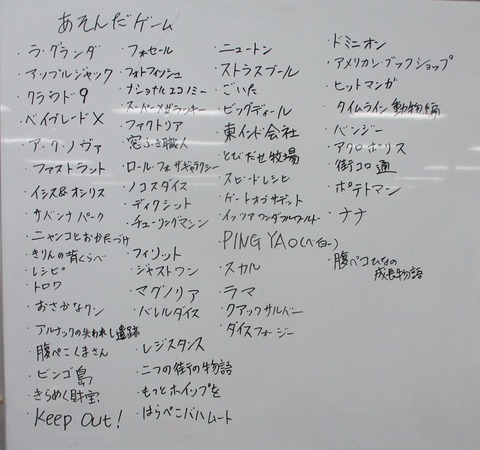 あそんだゲーム
・ラ・グランダ
・アップルジャック
・クラウド9
・ベイブレードX
・ア・ク・ノヴァ
・ファストラント
・イシス&オシリス
・サバンナパーク
・ニャンコとおかたづけ
・きりんの背くらべ
・レシピ
・トロワ
・おさかなクン
・アルナックの失われし遺跡
・腹ぺこくまさん
・ビンゴ島
・きらめく財宝
・Keep Out!
・フォセール
・フォトフィッシュ
・ナショナルエコノミー
・スーパーメガラッキー
・ファクトリア
・窓ふき職人
・ロール・フォー・ザ・ギャラクシー
・ノコスダイス
・ディクシット
・チューリングマシン
・フィリット
・ジャストワン
・マグノリア
・バレルダイス
・レジスタンス
・二つの街の物語
・もっとホイップを
・はらぺこバハムート
・ニュートン
・ストラスブール
・ごいた
・ビッグディール
・東インド会社
・とびだせ牧場
・スピードレシピ
・ゲートオブサデット
・イッツアワンダフルワールド
・PING YAO(ペイヨー)
・スカル
・ラマ
・クアックサルバー
・ダイスフォージー
・ドミニオン
・アメリカン・ブックショップ
・ヒットマンガ
・タイムライン動物編
・バンジー
・アクロポリス
・街コロ通
・ポテトマン
・ナナ
・腹ペコひなの
成長物語